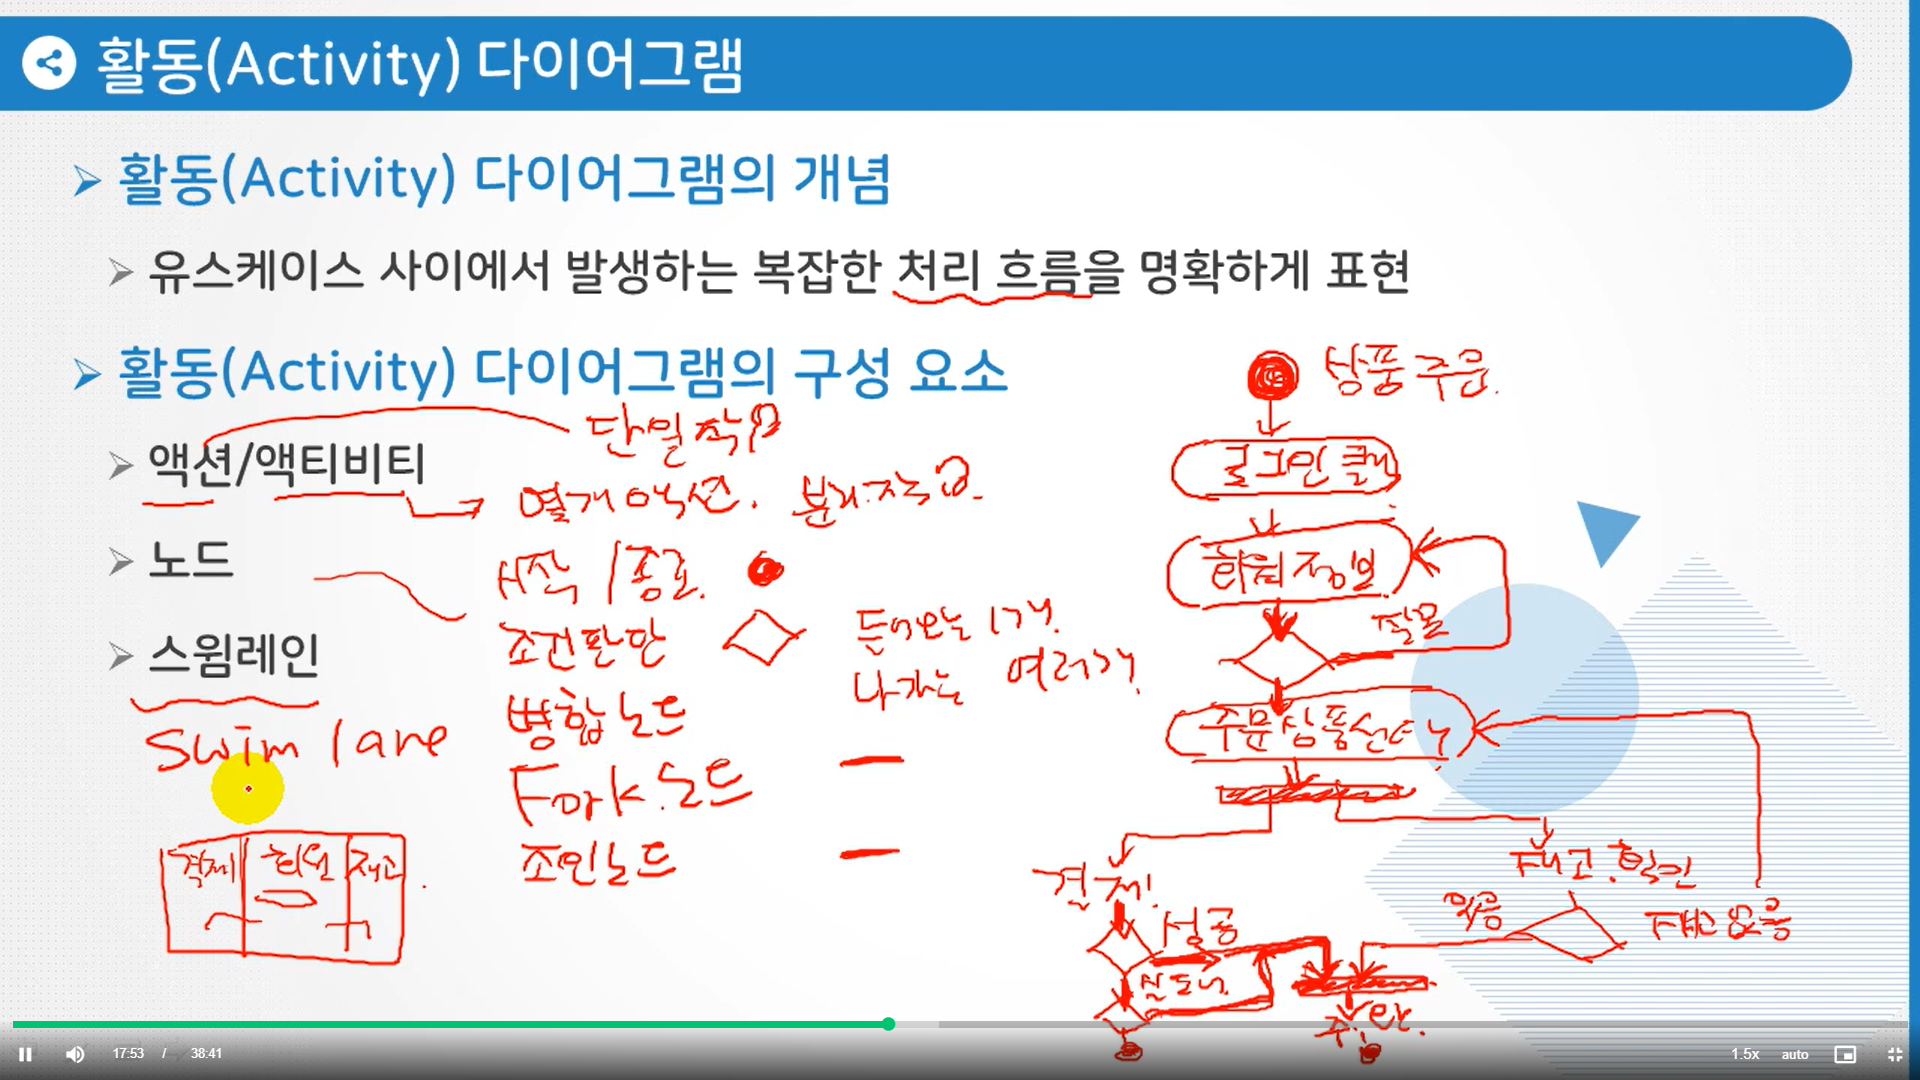 활동(Activity) 다이어그램
활동(Activity) 다이어그램의 개념
유스케이스 사이에서 발생하는 복잡한 처리 흐름을 명확하게 표현
활동(Activity) 다이어그램의 구성 요소
액션/액티비티
단일 작업
여러개 액션. 분리.작업.
노드
시작/종료.
조건판단
들어오는 1개.
나가는 여러개.
병합노드
Fork.노드
조인노드
스윔레인
swim lane
결제
회원
재고
상품주문.
로그인 클릭
회원정보
잘못
주문상품선택
결제!
성공
재고.확인
재고없음
17:53 / 38:41
1.5x
auto